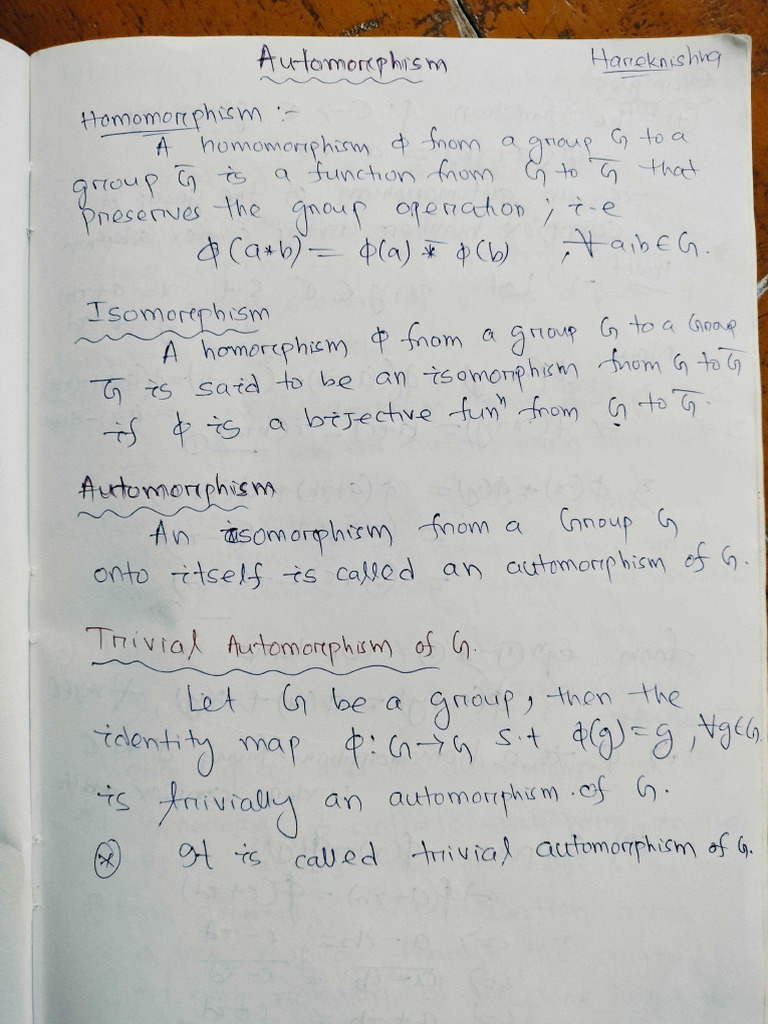 Automorphism
Harekrishna
Homomorphism :-
A homomorphism ϕ from a group G to a
group G̅ is a function from G to G̅ that
preserves the group operation; i.e
ϕ(a*b) = ϕ(a) *̅ ϕ(b) , ∀ a,b ∈ G.
Isomorphism
A homorphism ϕ from a group G to a Group
G̅ is said to be an isomorphism from G to G̅
if ϕ is a bijective funⁿ from G to G̅.
Automorphism
An isomorphism from a Group G
onto itself is called an automorphism of G.
Trivial Automorphism of G.
Let G be a group, then the
identity map ϕ: G→G s.t ϕ(g)=g, ∀g∈G
is trivially an automorphism of G.
⊛ It is called trivial automorphism of G.